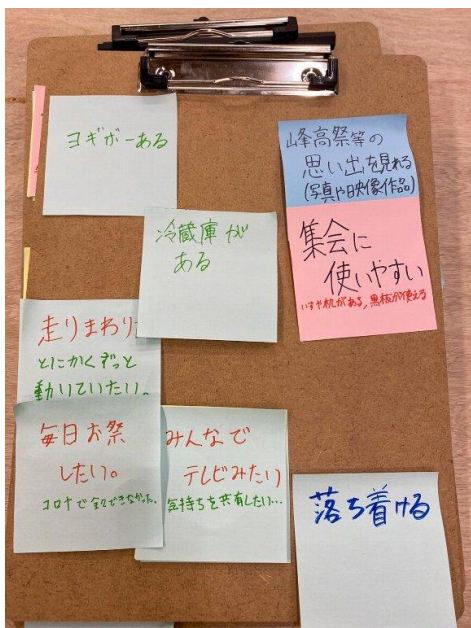 ヨギボーある
冷蔵庫が
ある
峰高祭等の
思い出を見れる
(写真や映像作品)
集会に
使いやすい
いすや机がある,黒板が使える
走りまわり
とにかくずっと
動いていたい。
毎日お祭
したい。
コロナで全くできなかった。
みんなで
テレビみたい
気持ちを共有したい…
落ち着ける